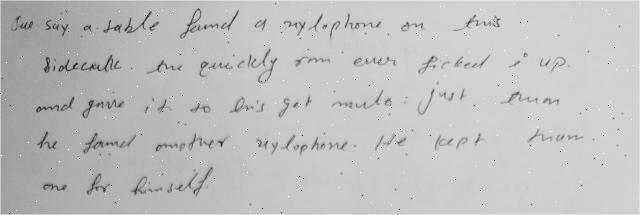 One say. a sable found a xylophone on this
sidewalk. the quickly ran over picked i up.
and gave it to his get mule. just then
he found another xylophone. He kept than
one for himself.